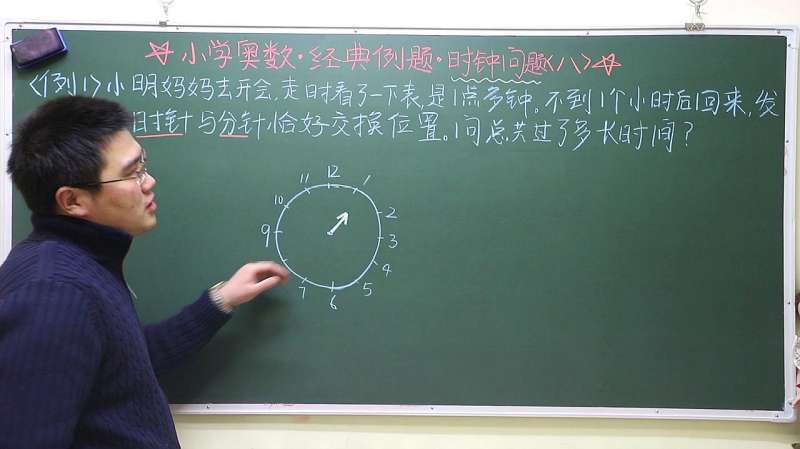 ☆小学奥数·经典例题·时钟问题<八>☆
<例1>小明妈妈去开会,走时看了一下表,是1点多钟。不到1个小时后回来,发
时针与分针恰好交换位置。问总共过了多长时间?
12
11
1
10
2
9
3
4
7
6
5